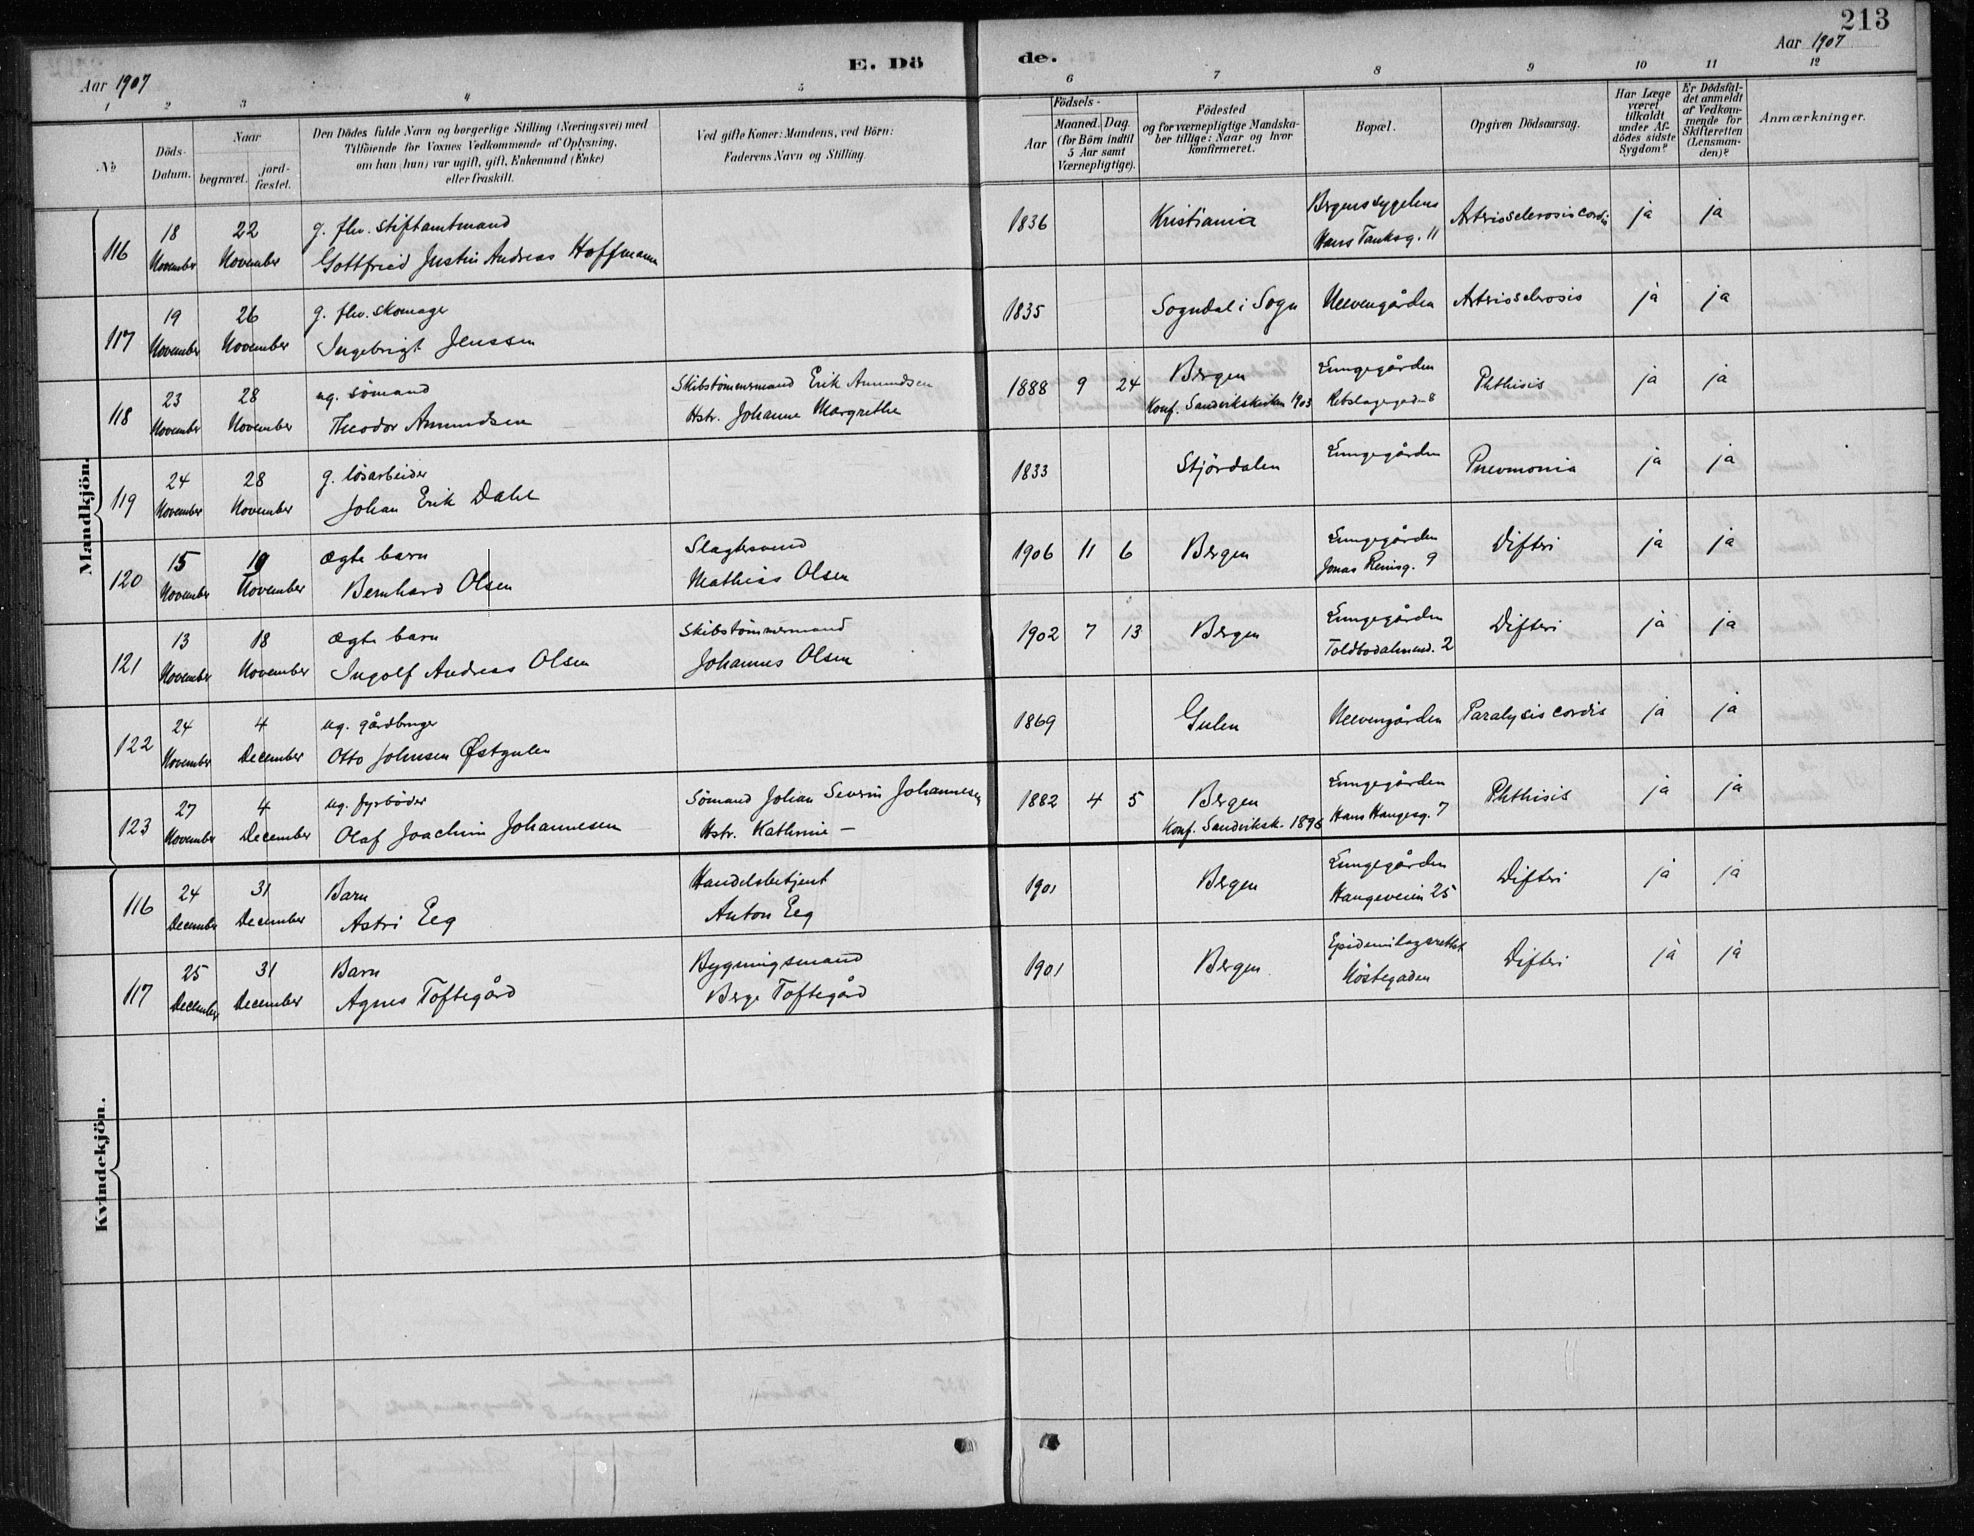 213
Aar 1907
E. Dö
de.
Aar 1907
1 2 3 4 5 6 7 8 9 10 11 12
No
Döds-Datum.
Naar
begravet.
jord-fæstet.
Den Dödes fulde Navn og borgerlige Stilling (Næringsvei) med
Tilföiende for Voxnes Vedkommende af Oplysning,
om han (hun) var ugift, gift, Enkemand (Enke)
eller fraskilt.
Ved gifte Koner: Mandens, ved Börn:
Faderens Navn og Stilling.
Födsels-
Aar
Maaned. Dag.
(for Börn indtil
5 Aar samt
Værnepligtige).
Födested
og for værnepligtige Mandska-
ber tillige: Naar og hvor
konfirmeret.
Bopæl.
Opgiven Dödsaarsag.
Har Læge
været
tilkaldt
under Af-
dödes sidste
Sygdom?
Er Dödsfal-
det anmeldt
af Vedkom-
mende for
Skifteretten
(Lensman-
den)?
Anmærkninger.
Mandkjön.
116 18 November 22 November g. fhv. stiftamtmand
Gottfried Justin Andreas Hoffmann 1836 Kristiania Bergens sygehus
Hans Tanksg. 11 Arteriosclerosis cordis ja ja
117 19 November 26 November g. fhv. skomager
Ingebrigt Jenssen 1835 Sogndal i Sogn Neevengården Arteriosclerosis ja ja
118 23 November 28 November ug. sømand
Theodor Amundsen Skibstømmermand Erik Amundsen
Hstr. Johanne Margrethe 1888 9 24 Bergen
Konf. Sandvikskirken 1903 Lungegården
Rebslagergaden 8 Phthisis ja ja
119 24 November 28 November g. løsarbeider
Johan Erik Dahl 1833 Stjördalen Lungegården Pneumonia ja ja
120 15 November 19 November ægte barn
Bernhard Olsen Slagtersvend
Mathias Olsen 1906 11 6 Bergen Lungegården
Jonas Reinsg. 9 Difteri ja ja
121 13 November 18 November ægte barn
Ingolf Andreas Olsen Skibstømmermand
Johannes Olsen 1902 7 13 Bergen Lungegården
Toldbodalmend. 2 Difteri ja ja
122 24 November 4 December ug. gårdbruger
Otto Johnsen Østgulen 1869 Gulen Neevengården Paralysis cordis ja ja
123 27 November 4 December ug. fyrbøder
Olaf Joachim Johannesen Sømand Johan Severin Johannesen
Hstr. Kathrine — 1882 4 5 Bergen
Konf. Sandviksk. 1896 Lungegården
Hans Haugesg. 7 Phthisis ja ja
Kvindekjön.
116 24 December 31 December Barn
Astri Eeg Handelsbetjent
Anton Eeg 1901 Bergen Lungegården
Haugeveien 25 Difteri ja ja
117 25 December 31 December Barn
Agnes Toftegård Bygningsmand
Berge Toftegård 1901 Bergen Epidemilazarettet
Nöstegaden Difteri ja ja